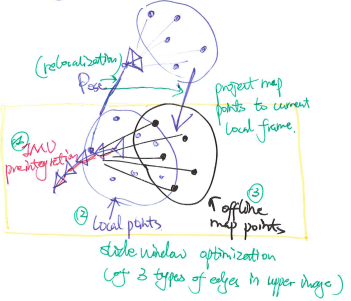 (relocalization)
Pose
project map
points to current
local frame.
① IMU
preintegration
② local points
③
offline
map points
slide window optimization
(of 3 types of edges in upper image)